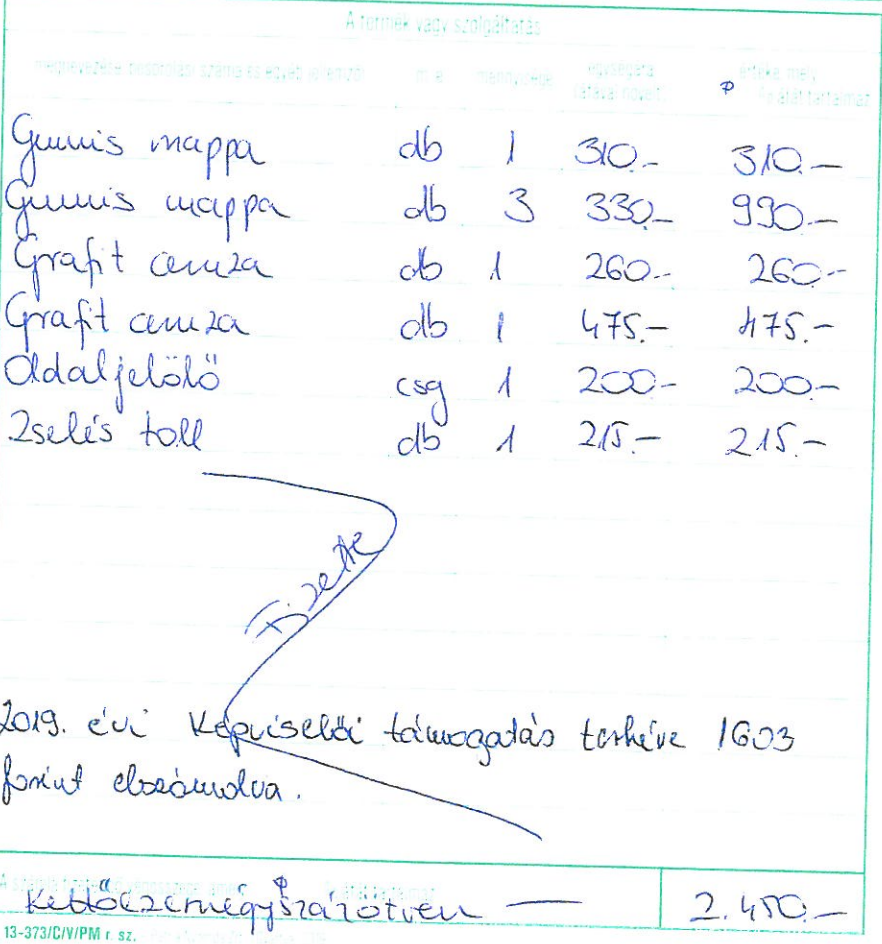 A termék vagy szolgáltatás
megnevezése, besorolási száma és egyéb jellemzői m. e. mennyisége egységára értéke, mely
áfával növelt % áfát tartalmaz
Gumis mappa db 1 310.- 310.-
Gumis mappa db 3 330.- 990.-
Grafit ceruza db 1 260.- 260.-
Grafit ceruza db 1 475.- 475.-
Oldaljelölő csg 1 200.- 200.-
Zselés toll db 1 215.- 215.-
Fizetve
2019. évi Képviselői támogatás terhére 1603
forint elszámolva.
Kettőezernégyszázötven 2.450.-
13-373/C/V/PM r. sz.